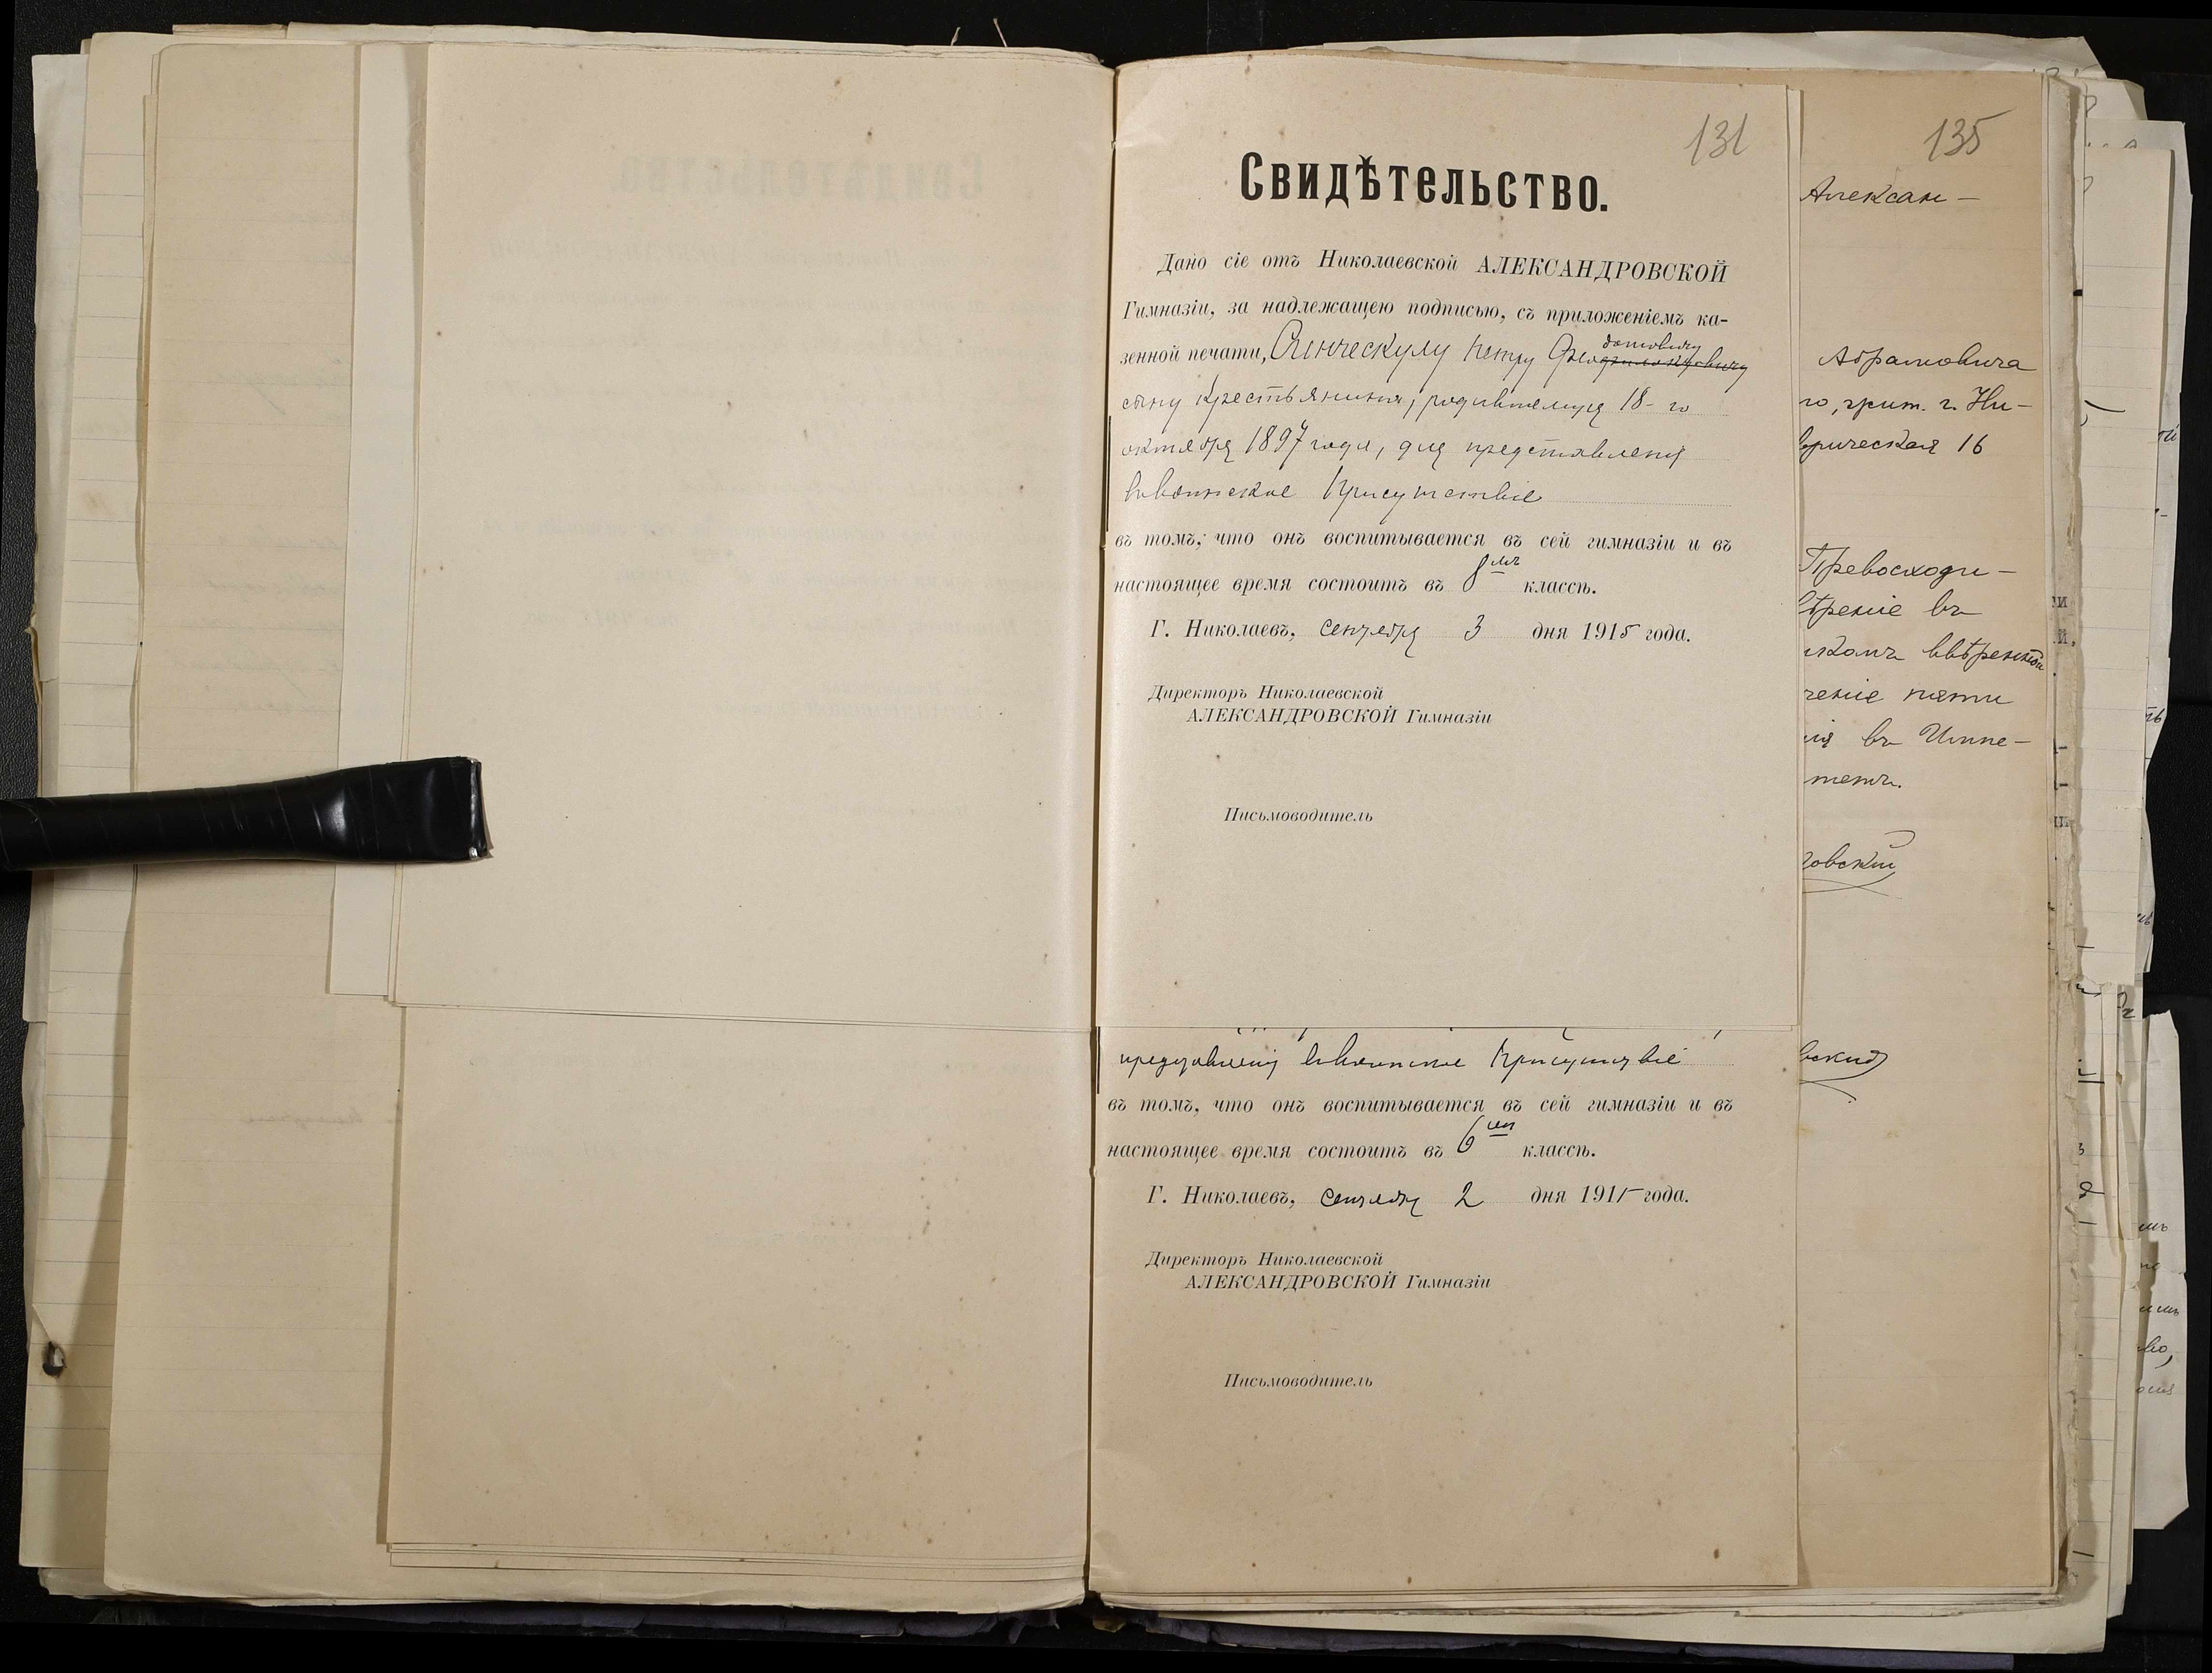 131
Свидѣтельство.
Дано сіе отъ Николаевской АЛЕКСАНДРОВСКОЙ
Гимназіи, за надлежащею подписью, съ приложеніемъ ка-
зенной печати, Петру
сыну крестьянина, родившемуся 18-го
октября 1897 года, для представленія
въ воинское Присутствіе
въ томъ, что онъ воспитывается въ сей гимназіи и въ
настоящее время состоитъ въ 8мъ классѣ.
Г. Николаевъ, сентября 3 дня 1915 года.
Директоръ Николаевской
АЛЕКСАНДРОВСКОЙ Гимназіи
Письмоводитель
представленія въ воинское Присутствіе
въ томъ, что онъ воспитывается въ сей гимназіи и въ
настоящее время состоитъ въ 6мъ классѣ.
Г. Николаевъ, сентября 2 дня 1915 года.
Директоръ Николаевской
АЛЕКСАНДРОВСКОЙ Гимназіи
Письмоводитель
135
Алексан-
Абрамовича
го, прит. г. Ни-
врическая 16
Превосходи-
ѣреніе въ
ввѣренной
ченіе пяти
ія въ Импе-
тетъ.
говскій
вскій